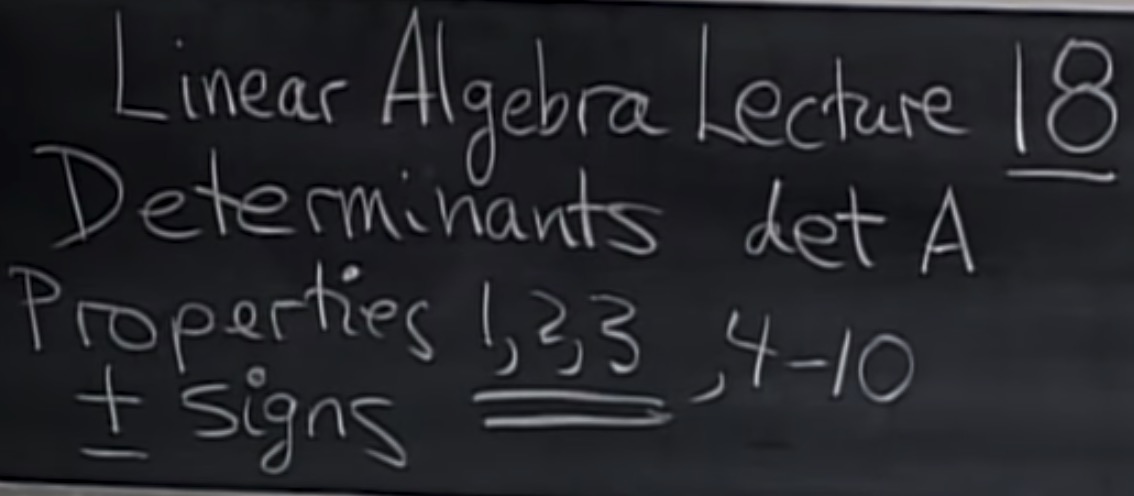 Linear Algebra Lecture 18
Determinants det A
Properties 1,2,3, 4-10
± signs